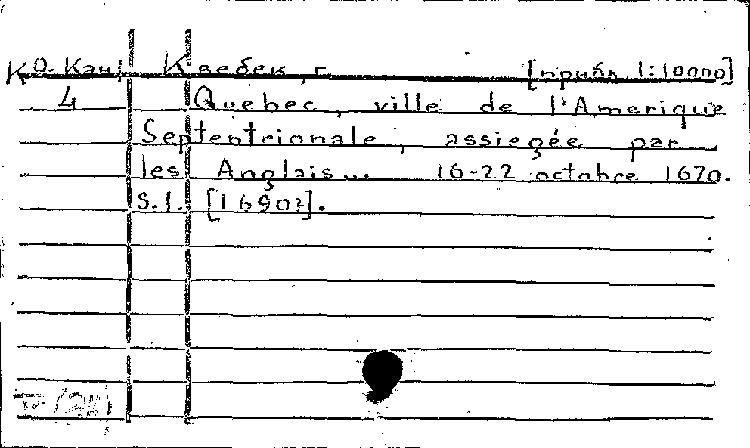 К О-Кан Квебек, г. [прибл. 1:10000]
4 Quebec, ville de l'Amerique
Septentrionale, assiegée par
les Anglais... 16-22 octobre 1670.
S.l. [1690?].